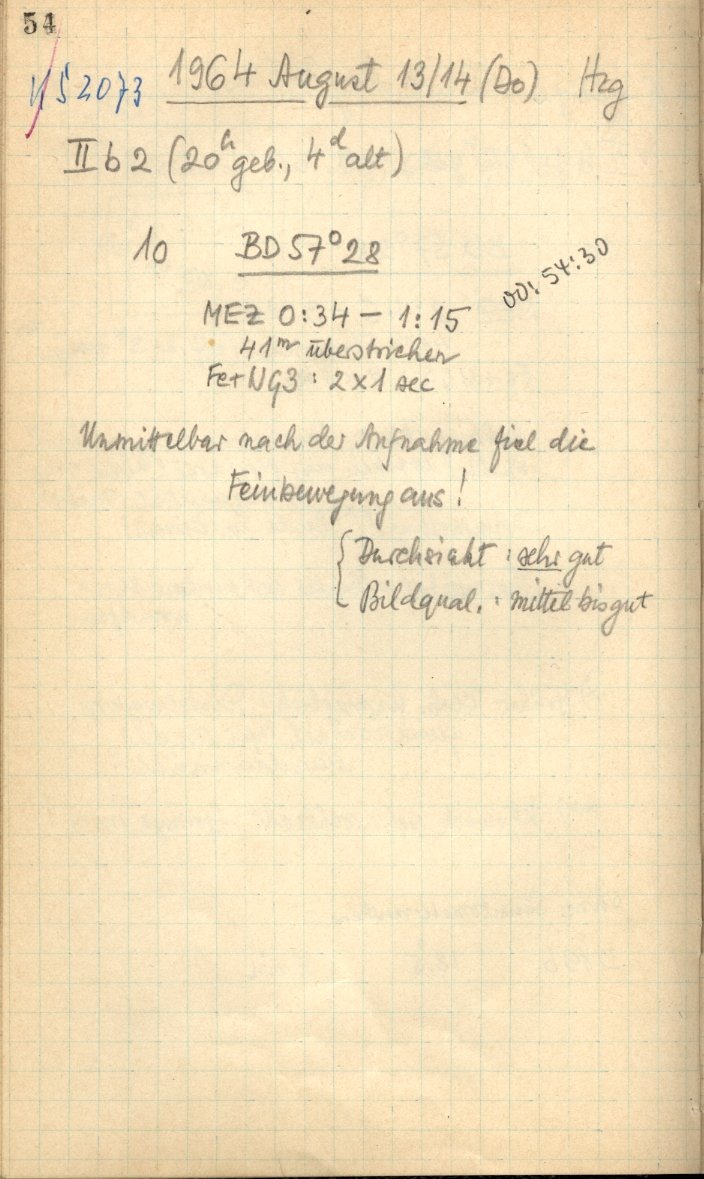 54
1964 August 13/14 (Do) Hzg
II b 2 (20h geb., 4d alt)
10 BD 57°28
00:54:30
MEZ 0:34 – 1:15
41m überstrichen
Fe+NG3 : 2 x 1 sec
Unmittelbar nach der Aufnahme fiel die
Feinbewegung aus!
Durchsicht : sehr gut
Bildqual. : mittel bis gut